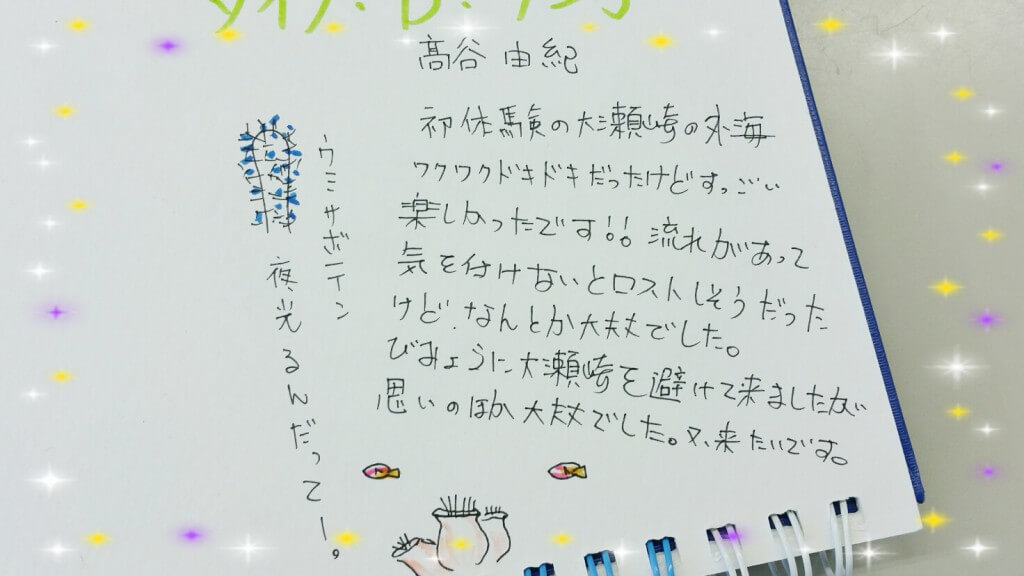 髙谷 由紀
初体験の大瀬崎の外海
ワクワクドキドキだったけどすっごい
楽しかったです!!。流れがあって
気を付けないとロストしそうだった
けど.なんとか大丈夫でした。
びみょうに大瀬崎を避けて来ましたが
思いのほか大丈夫でした。又、来たいです。
ウミサボテン
夜光るんだってー。